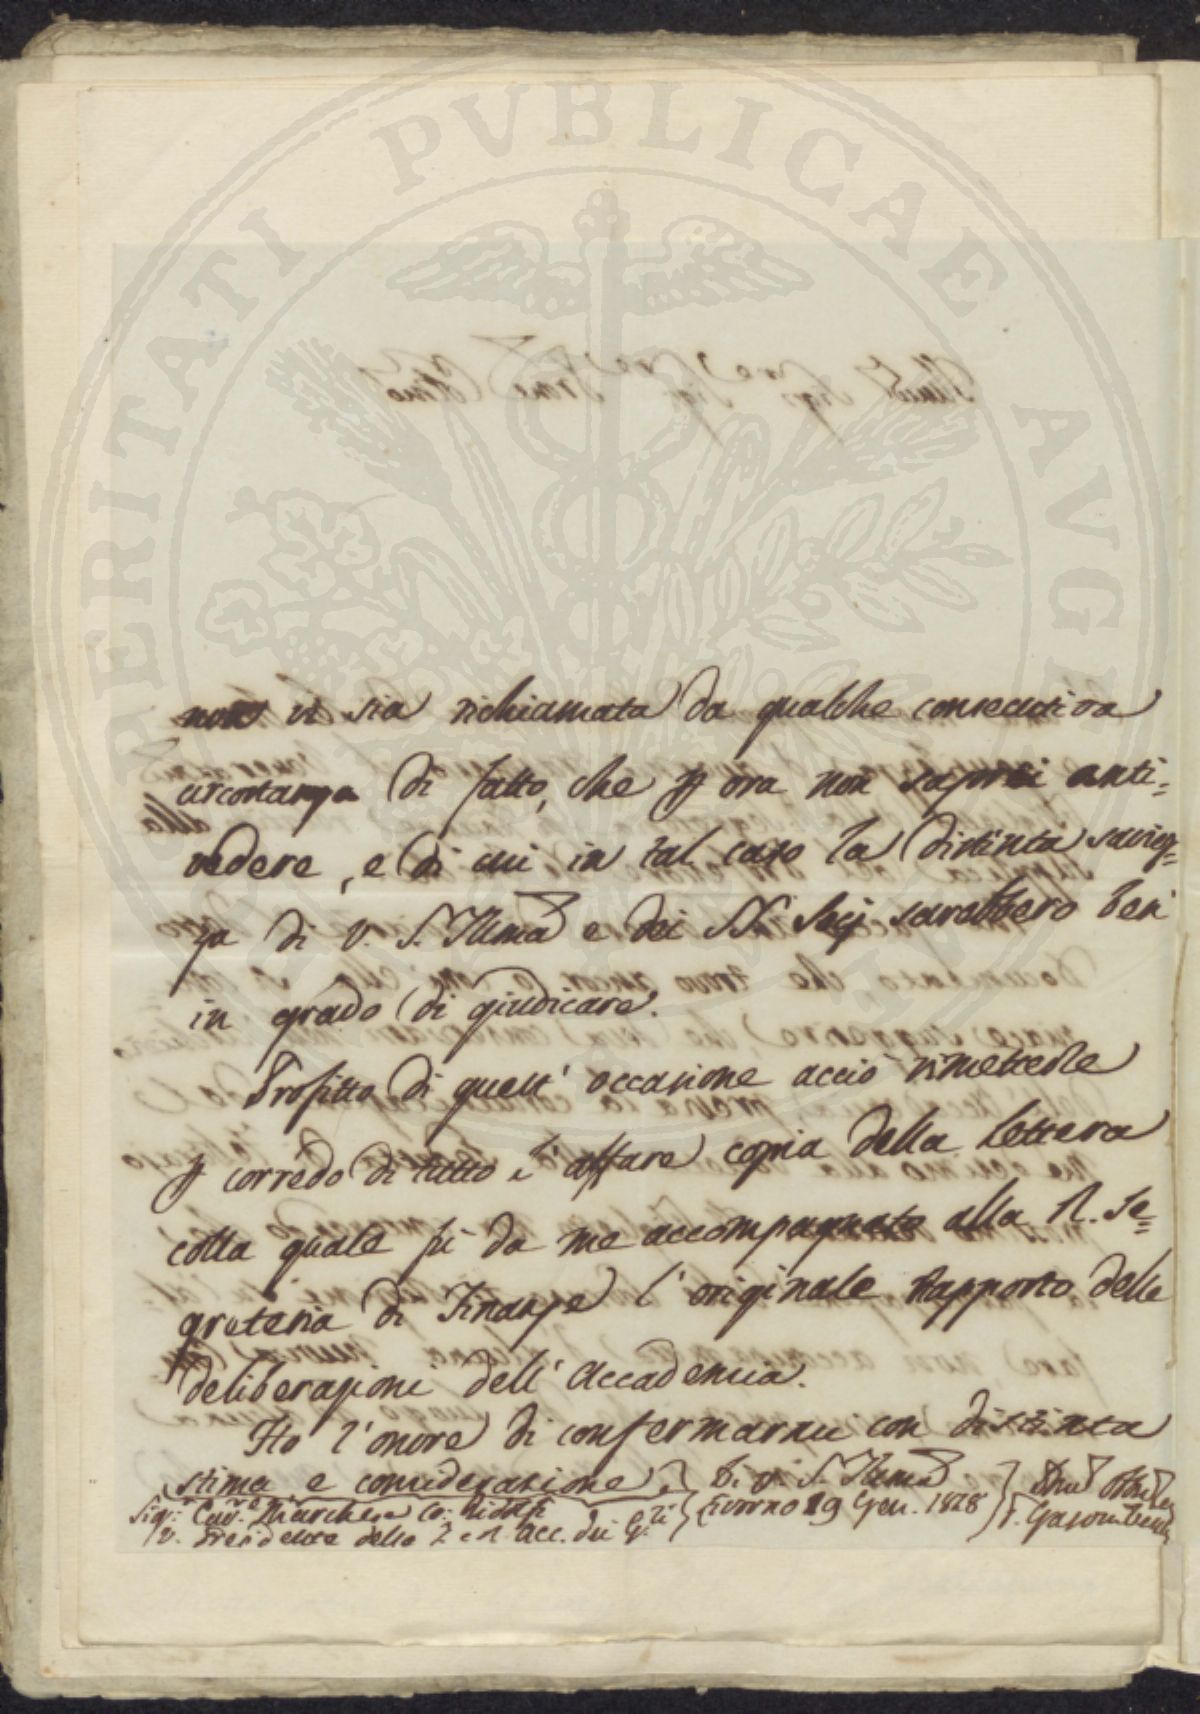 PROSPERITATI PUBLICAE AUGENDAE
non vi sia richiamata da qualche consecutiva
circostanza di fatto, che p ora non saprei anti=
vedere, e di cui in tal caso la distinta saviez=
za di V. S. Illma e dei SS. Socj sarebbero ben
in grado di giudicare.
Profitto di quest' occasione acciò rimetterle
p corredo di tutto l'affare copia della lettera
colla quale fù da me accompagnato alla R. Se=
greteria di Finanze l' originale Rapporto delle
deliberazioni dell' Accademia.
Ho l'onore di confermarmi con distinta
stima e considerazione
Di V. S. Illma
Livorno 19 Gen. 1828
Sigr. Cavre. Marchese Co: Ridolfi
V. Presidente della I. e R. Acc. dei G.